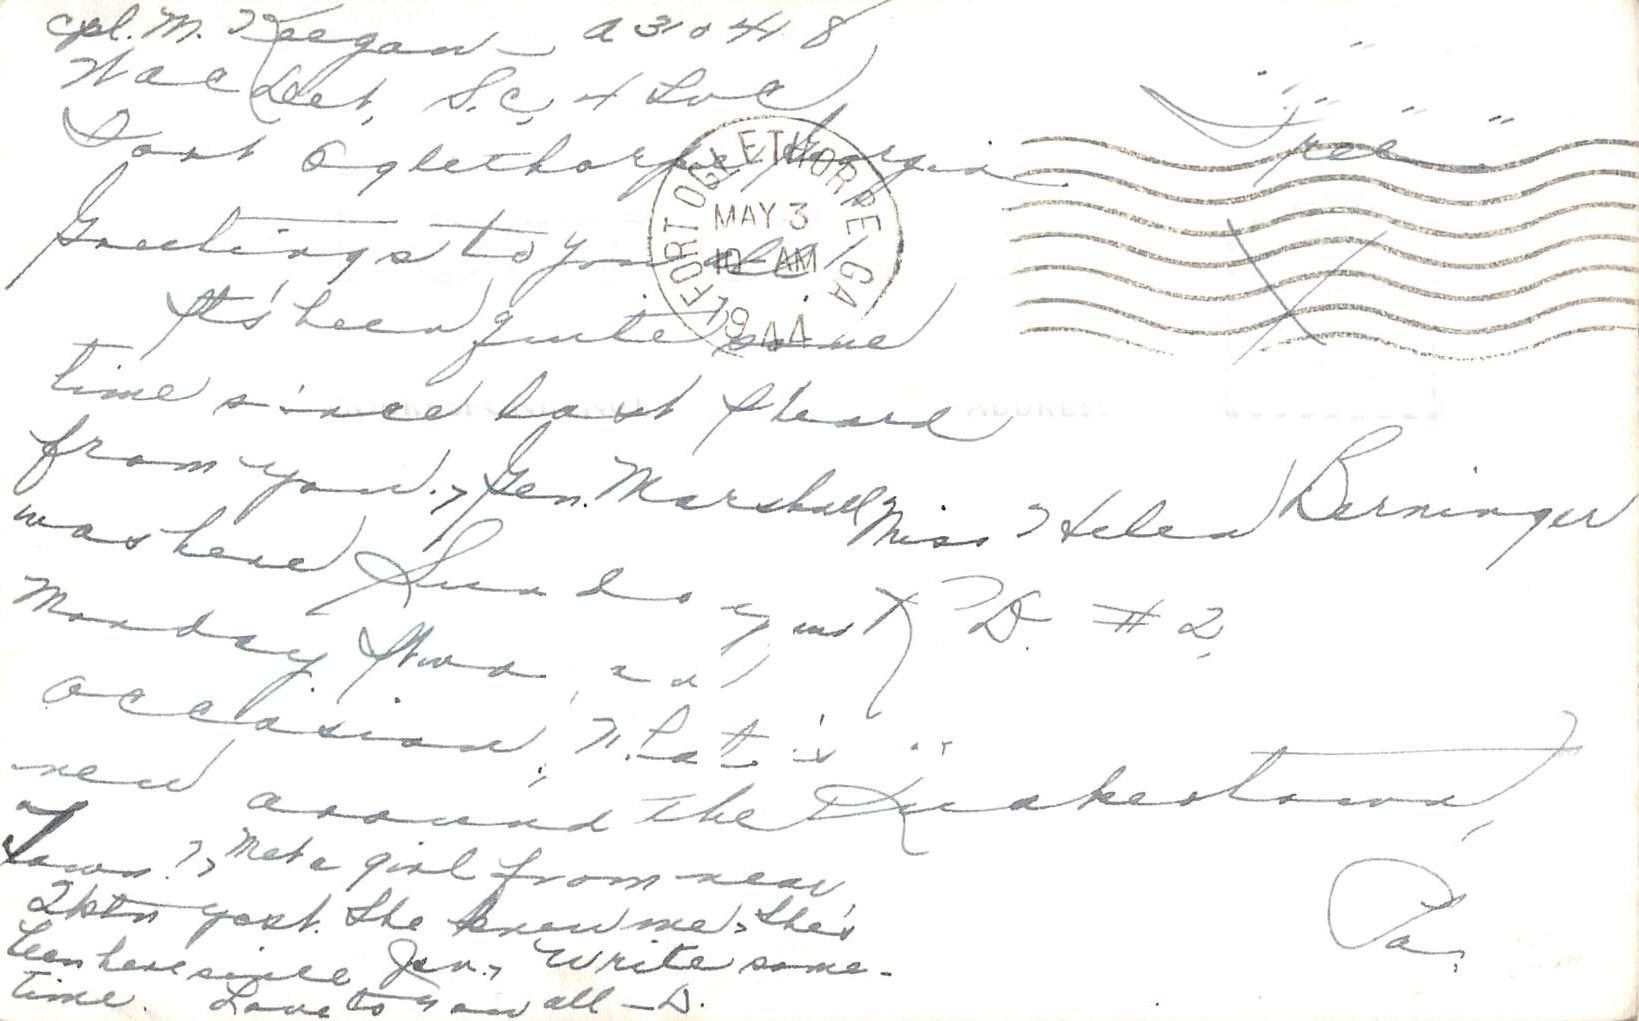 Cpl. M. Keegan - A310418
Wac Det, S.C, 4 SvC
Fort Oglethorpe, Georgia
"Free"
FORT OGLETHORPE GA
MAY 3
10 AM
1944
Greetings to you all
It's been quite some
time since last I heard
from you., Gen. Marshall
was here Sunday and
Monday. It was an
occasion, What is
new around the
Town?, Met a girl from near
Qktn yest. She knew me, she's
been here since Jan., Write some-
time. Love to you all - D.
Miss Helen Berninger
R.D. #2,
Quakertown,
Pa.